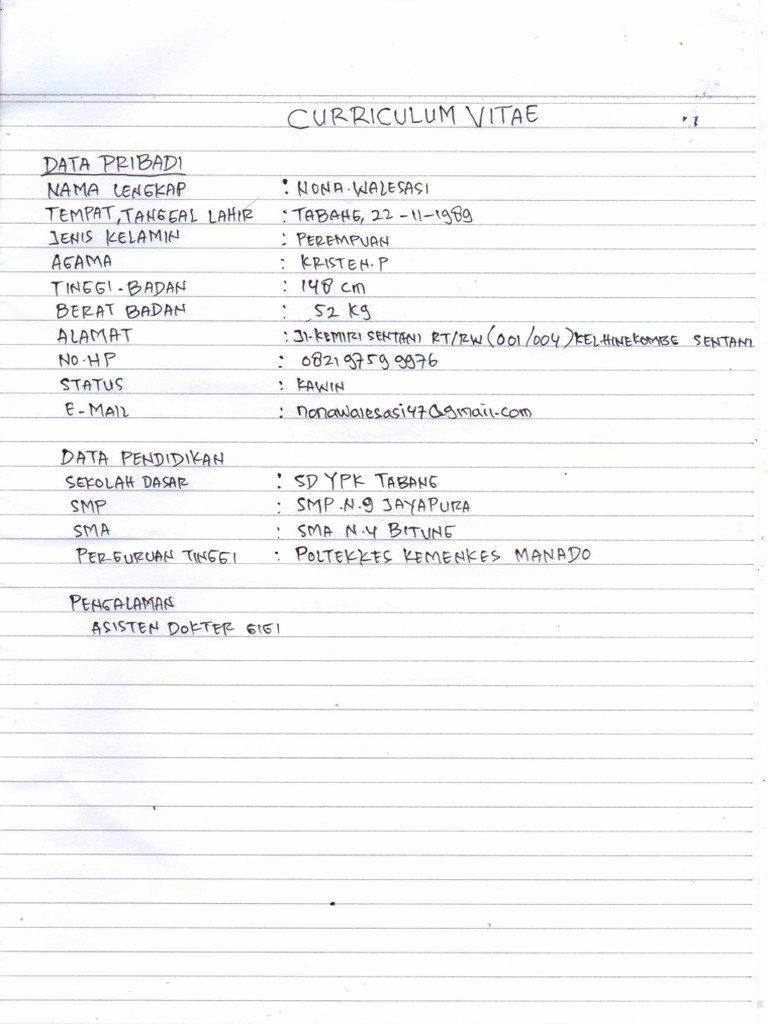 CURRICULUM VITAE
DATA PRIBADI
NAMA LENGKAP : NONA.WALESASI
TEMPAT, TANGGAL LAHIR : TABANG, 22-11-1989
JENIS KELAMIN : PEREMPUAN
AGAMA : KRISTEN.P
TINGGI-BADAN : 148 cm
BERAT BADAN : 52 kg
ALAMAT : Jl.KEMIRI SENTANI RT/RW (001/004) KEL.HINEKOMBE SENTANI
NO.HP : 082197599976
STATUS : KAWIN
E-MAIL : nonawalesasi47@gmail.com
DATA PENDIDIKAN
SEKOLAH DASAR : SD YPK TABANG
SMP : SMP.N.9 JAYAPURA
SMA : SMA N.4 BITUNG
PERGURUAN TINGGI : POLTEKKES KEMENKES MANADO
PENGALAMAN
ASISTEN DOKTER GIGI